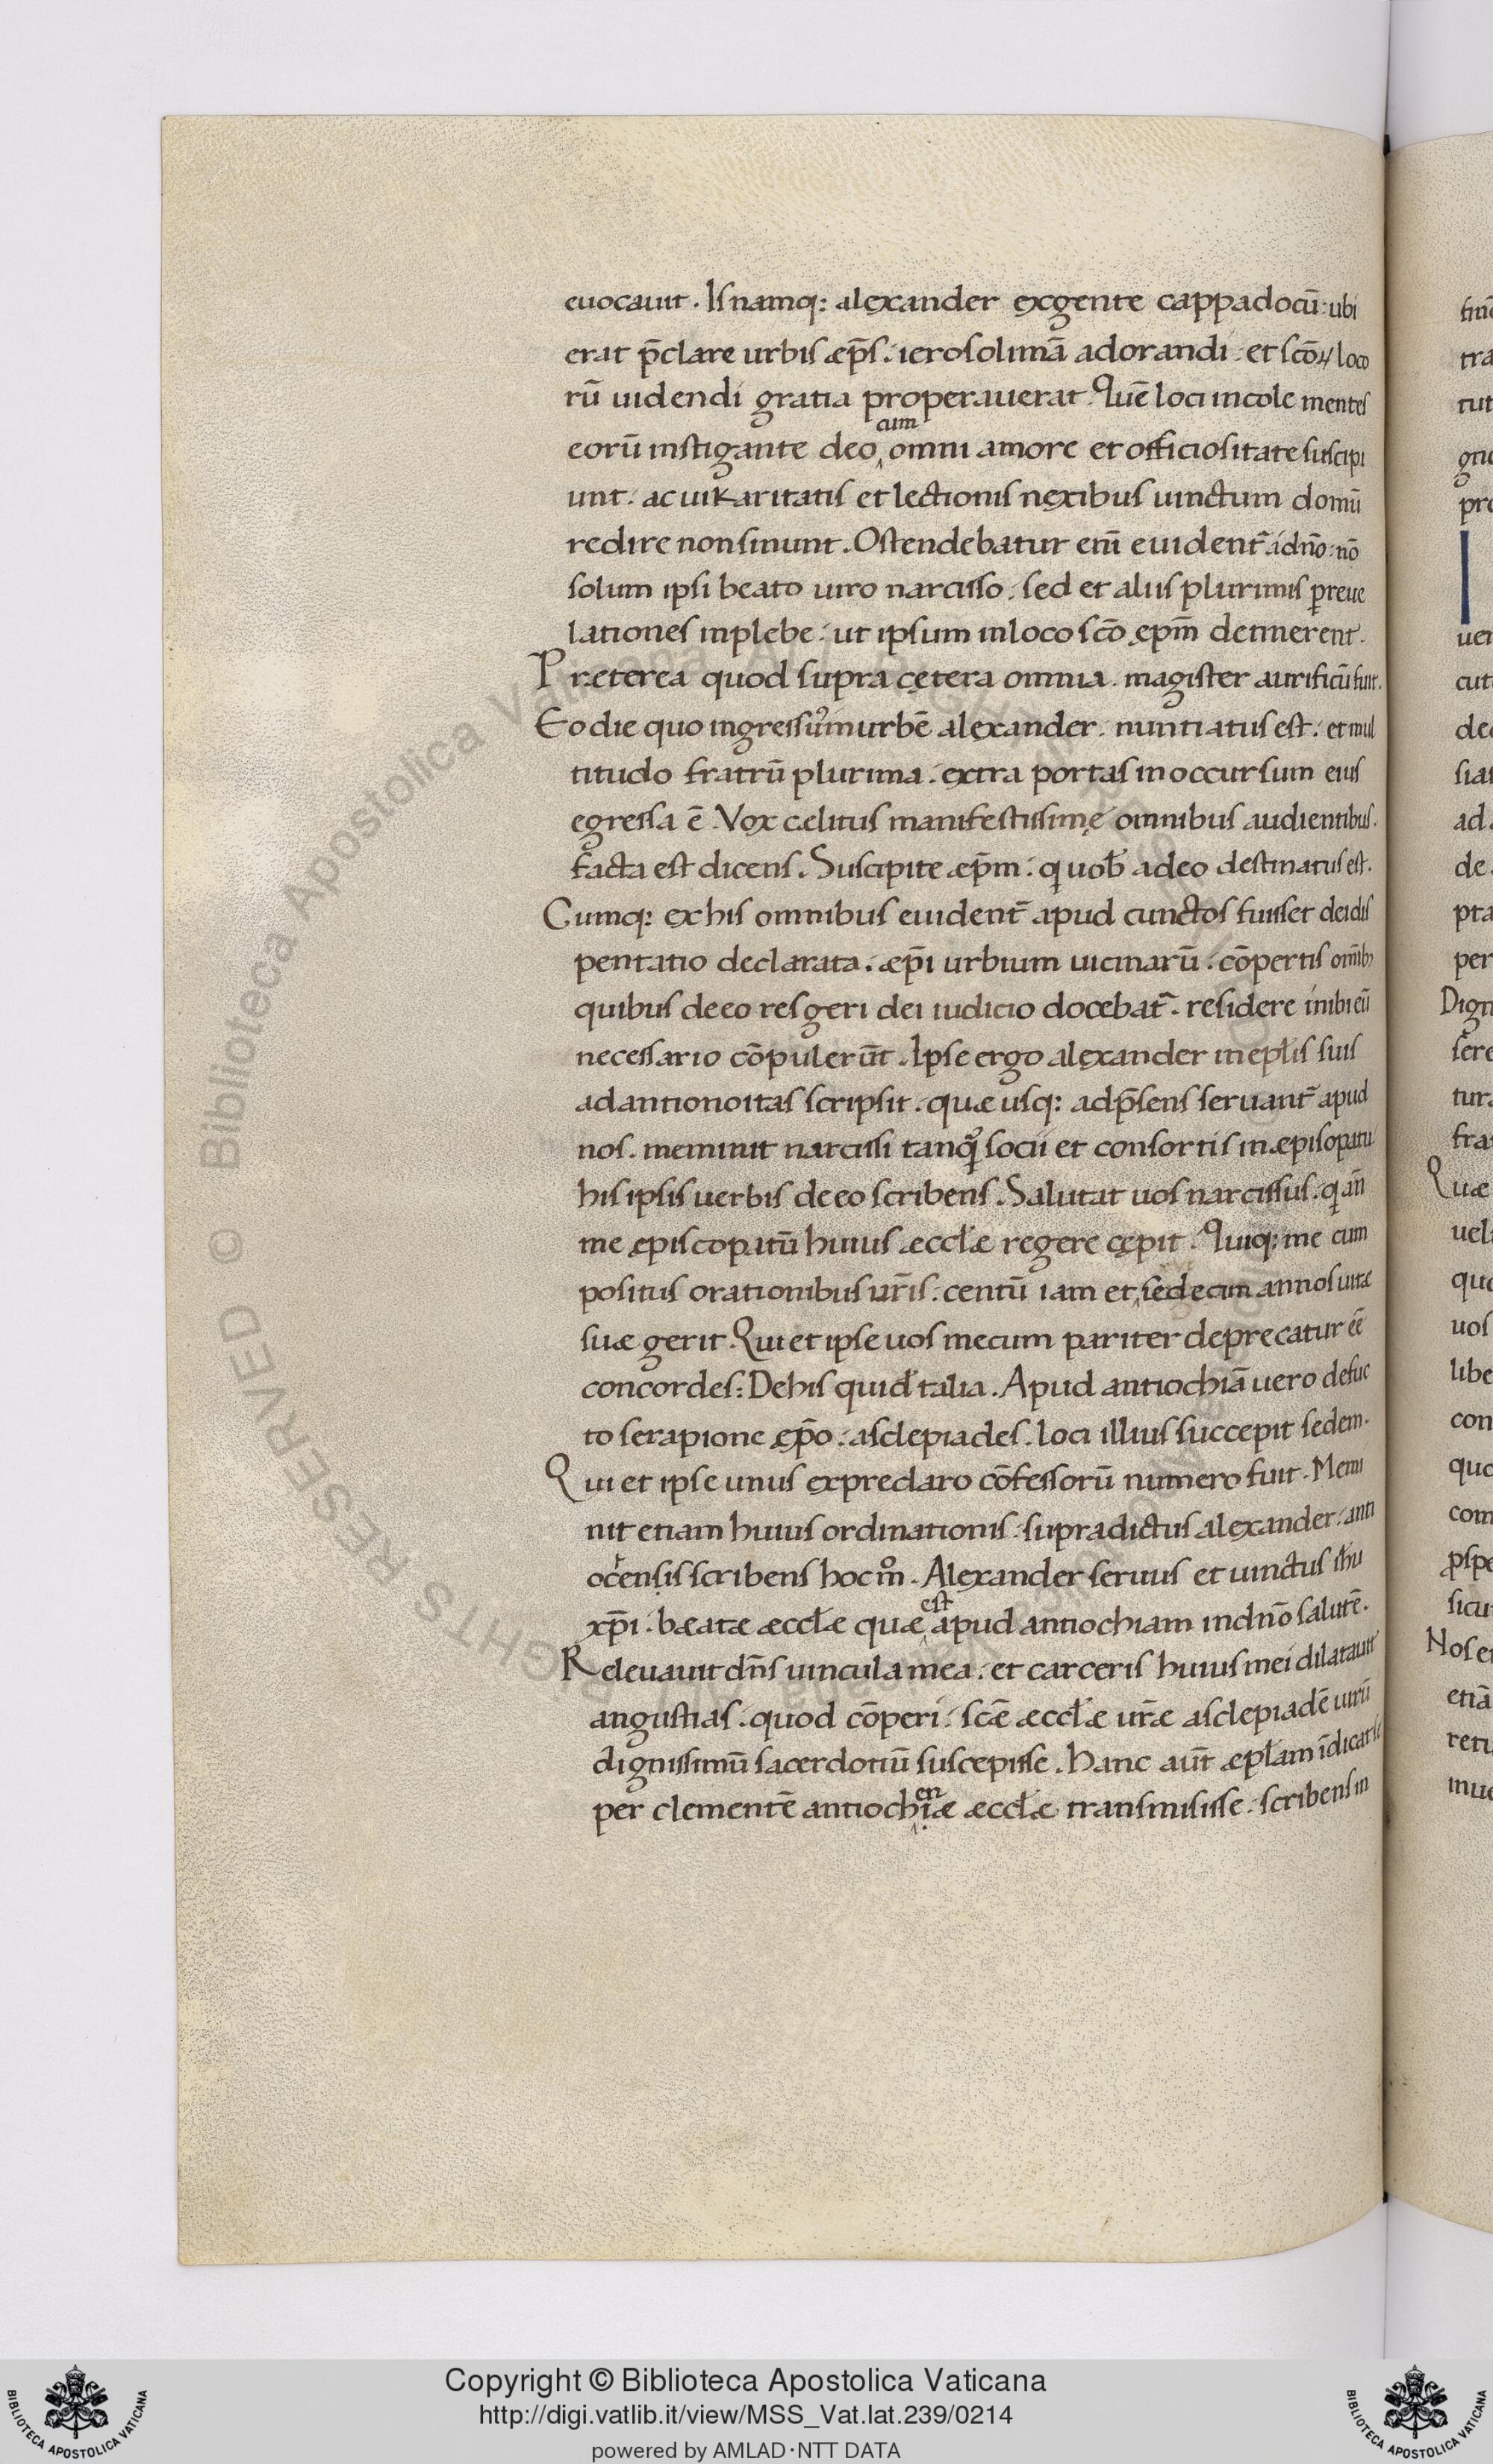 euocauit. Is namq: alexander ex gente cappadocū: ubi
erat p̄clare urbis æp̄s. ierosolimā adorandi. et scōꝝ loco
rū uidendi gratia properauerat. Quē loci incole mentes
eorū instigante deo cum omni amore et officiositate suscipi
unt. ac ui karitatis et lectionis nexibus uinctum domū
redire non sinunt. Ostendebatur eni̅ euident̄ a dn̄o: nō
solum ipsi beato uiro narcisso. sed et aliis plurimis p reue
lationes in plebe. ut ipsum in loco scō ępm̄ detinerent.
Pręterea quod supra cętera omnia. magister aurificū fuit.
Eo die quo ingressur᷒ in urbē alexander. nuntiatus est. et mul
titudo fratrū plurima. extra portas in occursum eius
egressa ē. Vox cælitus manifestissimę omnibus audientibus.
facta est dicens. Suscipite æp̄m. q uob̄ a deo destinatus est.
Cumq: ex his omnibus euident̄ apud cunctos fuisset dei dis
pentatio declarata. æp̄i urbium uicinarū. cōpertis om̄ib;
quibus de eo res geri dei iudicio docebat̄. residere inibi eū
necessario cōpulerūt. Ipse ergo alexander in epłis suis
ad antionoitas scripsit. quæ usq: ad p̄sens seruant̄ apud
nos. meminit narcissi tanqͣ socii et consortis in æpisopatu
his ipsis uerbis de eo scribens. Salutat uos narcissus. q an̄
me æpiscopatū huius æccłæ regere cępit. Quiq: me cum
positus orationibus ur̄is. centū iam et sedecim annos uitæ
suæ gerit. Qui et ipse uos mecum pariter deprecatur eē
concordes: De his quid̄ talia. Apud antiochiā uero defuc
to serapione ęp̄o. asclepiades. loci illius succepit sedem.
Qui et ipse unus ex preclaro cōfessorū numero fuit. Memi
nit etiam huius ordinationis. supradictus alexander. anti
ocensis scribens hoc mo̊. Alexander seruus et uinctus ihu
xp̄i. bæatæ æccłæ quæ est apud antiochiam in dn̄o salutē.
Releuauit dn̄s uincula mea. et carceris huius mei dilatauit
angustias. quod cōperi. scē æccłæ ur̄æ asclepiadē uirū
dignissimū sacerdotiū suscepisse. Hanc aūt æpłam īdicat se
per clementē antiochenæ æccłæ transmisisse. scribens in
Copyright © Biblioteca Apostolica Vaticana
http://digi.vatlib.it/view/MSS_Vat.lat.239/0214
powered by AMLAD·NTT DATA